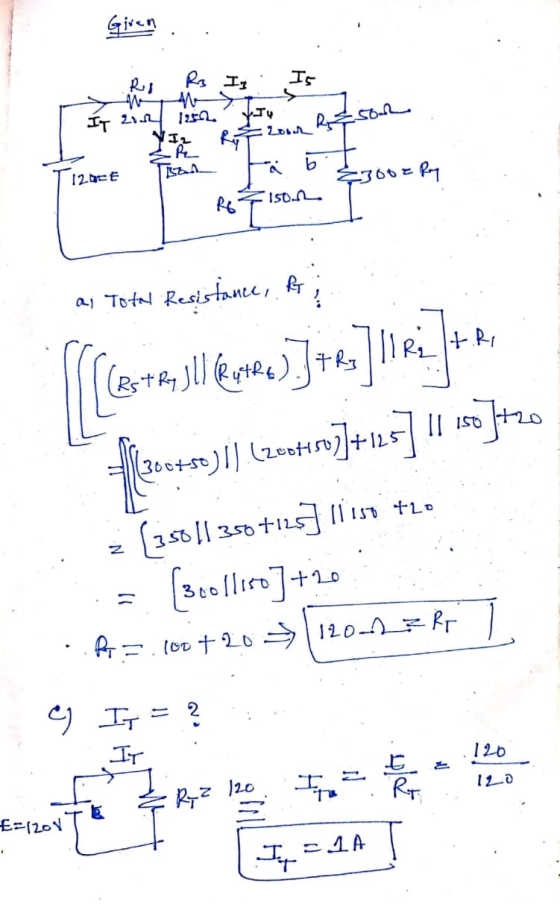 Given
R1 R3 I3 I5
IT 20Ω 125Ω I4 R5 50Ω
I2 R4 200Ω
R2 a b
120=E 150Ω 300=R7
R6 150Ω
a) Total Resistance, RT ;
[[[(R5+R7)||(R4+R6)]+R3]||R2]+R1
=[[(300+50)||(200+150)]+125]||150]+20
= [350||350+125]||150 +20
= [300||150]+20
RT = 100+20 ⇒ 120Ω = RT
c) IT = ?
IT
E=120V E RT = 120 IT = E/RT = 120/120
IT = 1A